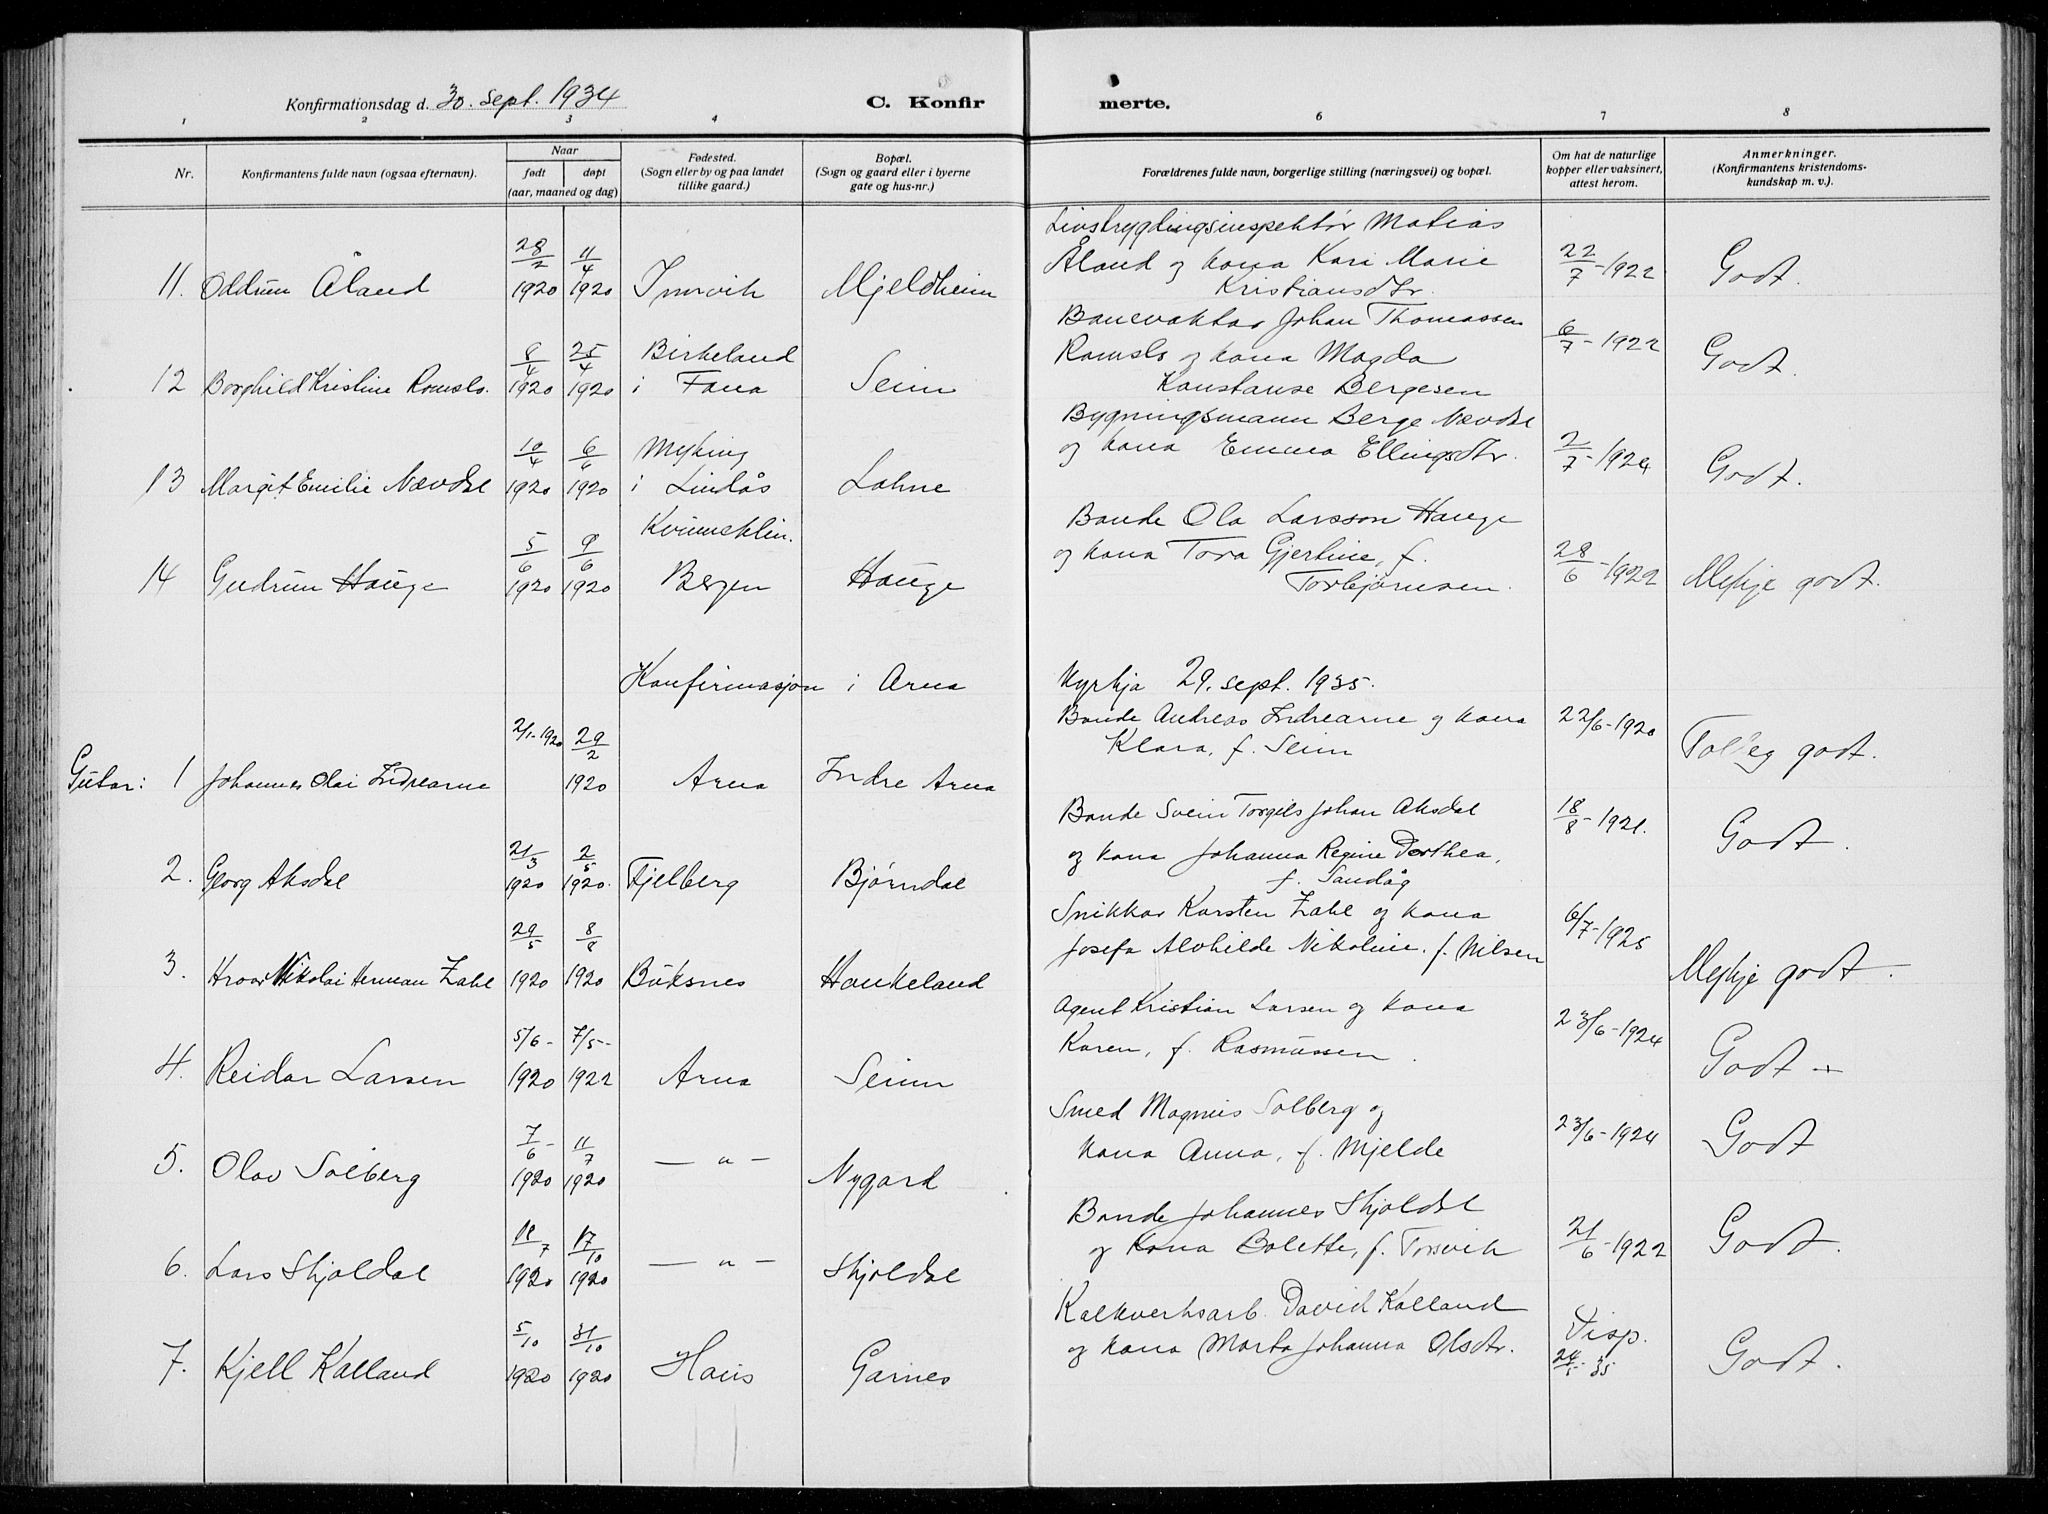 Konfirmationsdag d. 30. sept. 1934
C. Konfirmerte.
1 2 3 4 6 7 8
Nr.
Konfirmantens fulde navn (ogsaa efternavn).
Naar
født døpt
(aar, maaned og dag)
Fødested.
(Sogn eller by og paa landet
tillike gaard.)
Bopæl.
(Sogn og gaard eller i byerne
gate og hus-nr.)
Forældrenes fulde navn, borgerlige stilling (næringsvei) og bopæl.
Om hat de naturlige
kopper eller vaksinert,
attest herom.
Anmerkninger.
(Konfirmantens kristendoms-
kundskap m. v.).
11. Oddrun Åland 28/2 1920 11/4 1920 Innvik Mjeldheim
Livstrygdingsinspektør Matias
Åland og kona Kari Marie
Kristiansdtr.
22/7-1922 Godt.
12 Borghild Kristine Romslo. 8/4 1920 25/4 1920 Birkeland
i Fana Seim
Banevaktar Johan Thomassen
Romslo og kona Magda
Konstanse Bergesen
6/7-1922 Godt.
13 Margit Emilie Nævdal 10/4 1920 6/6 1920 Myking
i Lindås Lahne
Bygningsmann Berge Nævdal
og kona Emma Ellingsdtr.
2/7-1924 Godt.
14 Gudrun Hauge 5/6 1920 9/6 1920 Kvinneklin.
Bergen Hauge
Bonde Ola Larsson Hauge
og kona Tora Gjertine, f.
Torbjørnsen.
28/6-1922 Mykje godt.
Konfirmasjon i Arna Kyrkja 29. sept. 1935.
Gutar: 1 Johannes Olai Indrearne 2/1-1920 29/2 1920 Arna Indre Arna
Bonde Andreas Indrearne og kona
Klara, f. Seim
22/6-1920 Tolleg godt.
2. Georg Aksdal 21/3 1920 2/5 1920. Fjelberg Bjørndal
Bonde Svein Torgils Johan Aksdal
og kona Johanna Regine Dorthea,
f. Sandåg
18/8-1921. Godt.
3. Hroar Nikolai Herman Zahl 29/5 1920 8/8 1920 Buksnes Haukeland
Snikkar Karsten Zahl og kona
Josefa Alvhilde Nikoline. f. Nilsen
6/7-1925 Mykje godt.
4. Reidar Larsen 5/6-1920 7/5-1922 Arna Seim
Agent Kristian Larsen og kona
Karen, f. Rasmussen.
23/6-1924 Godt
5. Olav Solberg 7/6-1920 11/7 1920 — " — Nygard
Smed Magnus Solberg og
kona Anna, f. Mjelde
23/6-1924 Godt
6. Lars Skjoldal 18/7 1920 17/10 1920 — " — Skjoldal
Bonde Johannes Skjoldal
og kona Bolette, f. Torsvik
21/6-1922 Godt.
7. Kjell Kalland 5/10 1920 31/10 1920 Haus Garnes
Kalkverksarb. David Kalland
og kona Marta Johanna Olsdtr.
Disp.
24/5-35 Godt.